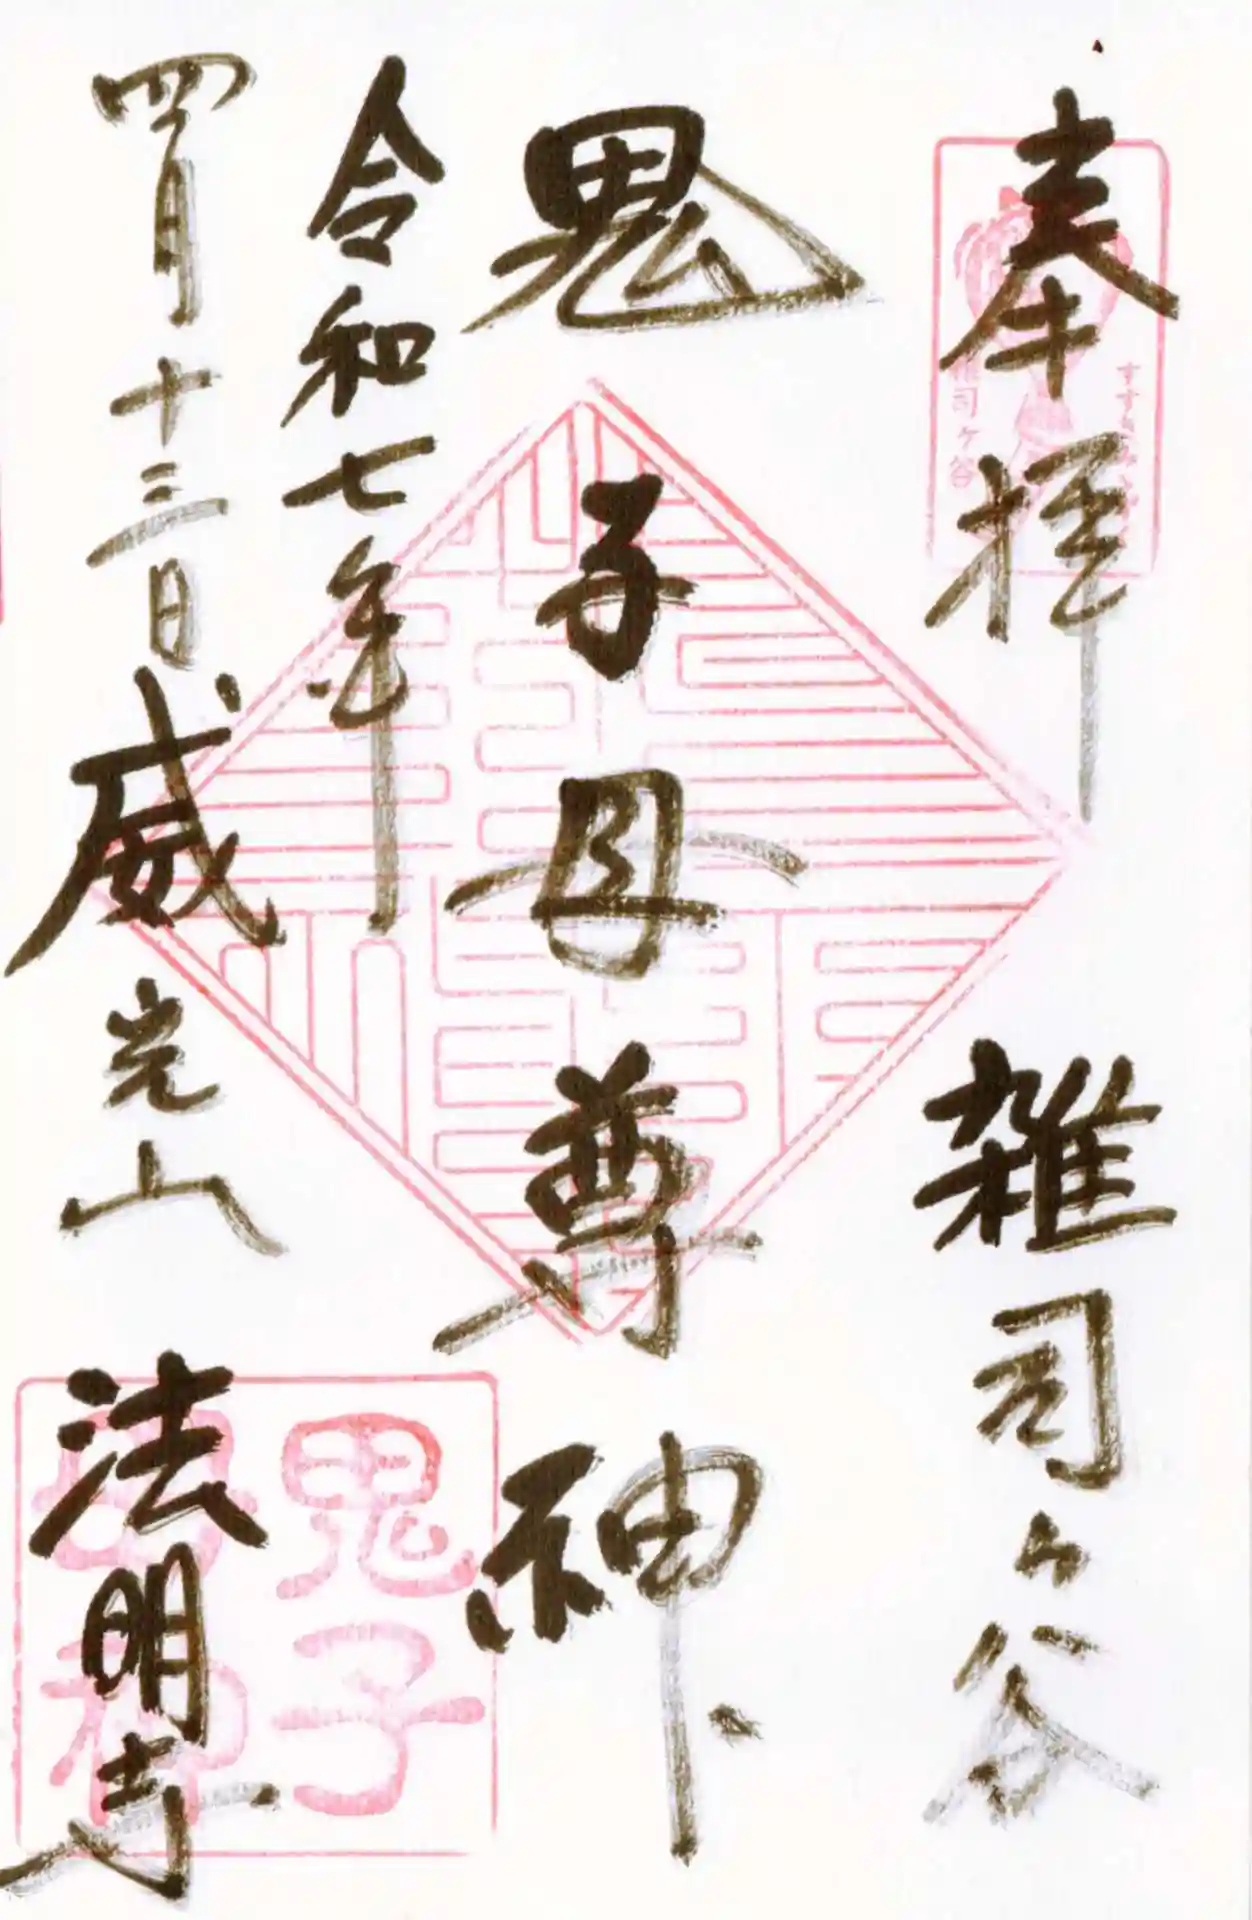 奉拝 雑司ケ谷
鬼子母尊神
令和七年
四月十三日 威光山 法明寺
雑司ケ谷
鬼子
母神